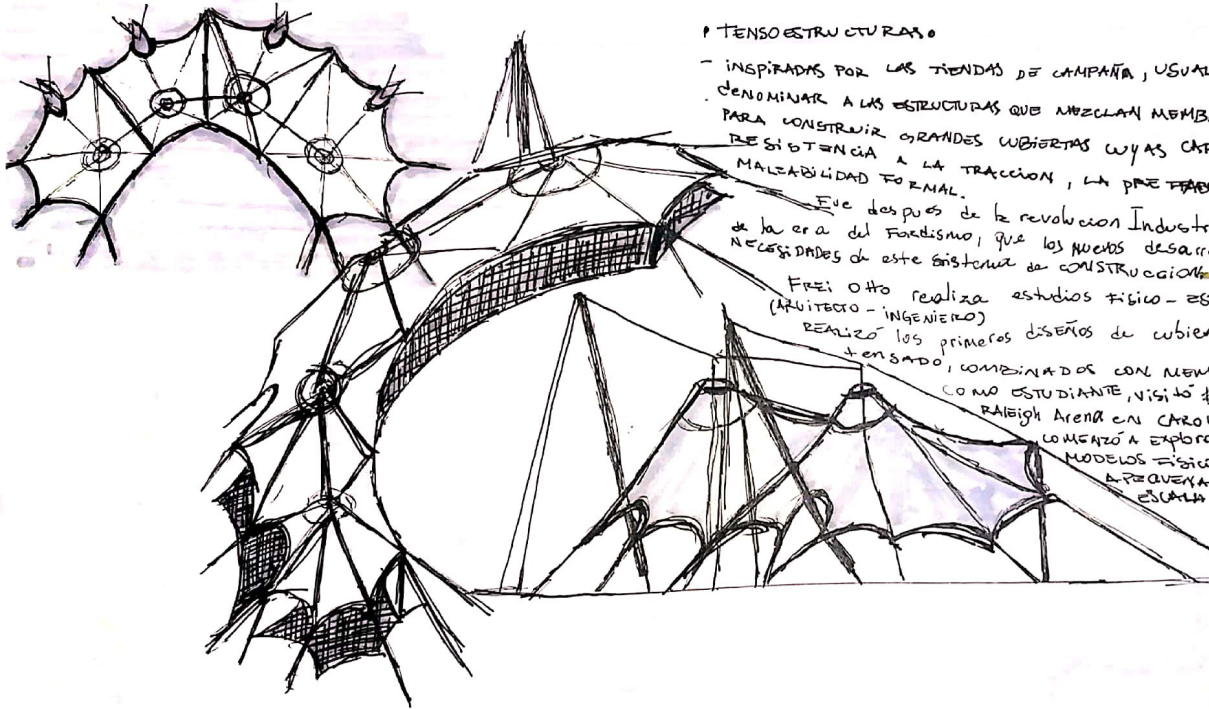 • TENSOESTRUCTURAS •
- INSPIRADAS POR LAS TIENDAS DE CAMPAÑA, USUAL
DENOMINAR A LAS ESTRUCTURAS QUE MEZCLAN MEMB
PARA CONSTRUIR GRANDES CUBIERTAS CUYAS CAR
RESISTENCIA A LA TRACCION, LA PRE
MALEABILIDAD FORMAL.
Fue despues de la revolucion Industr
de la era del Fordismo, que los nuevos desarr
NECESIDADES de este sistema de CONSTRUCCION
FREI Otto realiza estudios Fisico - ES
(ARQUITECTO - INGENIERO)
REALIZÓ los primeros diseños de cubier
tensado, COMBINADOS CON MEM
COMO ESTUDIANTE, visitó
RALEIGH Arena EN CARO
COMENZÓ A explor
MODELOS Fisic
A PEQUEÑA
ESCALA